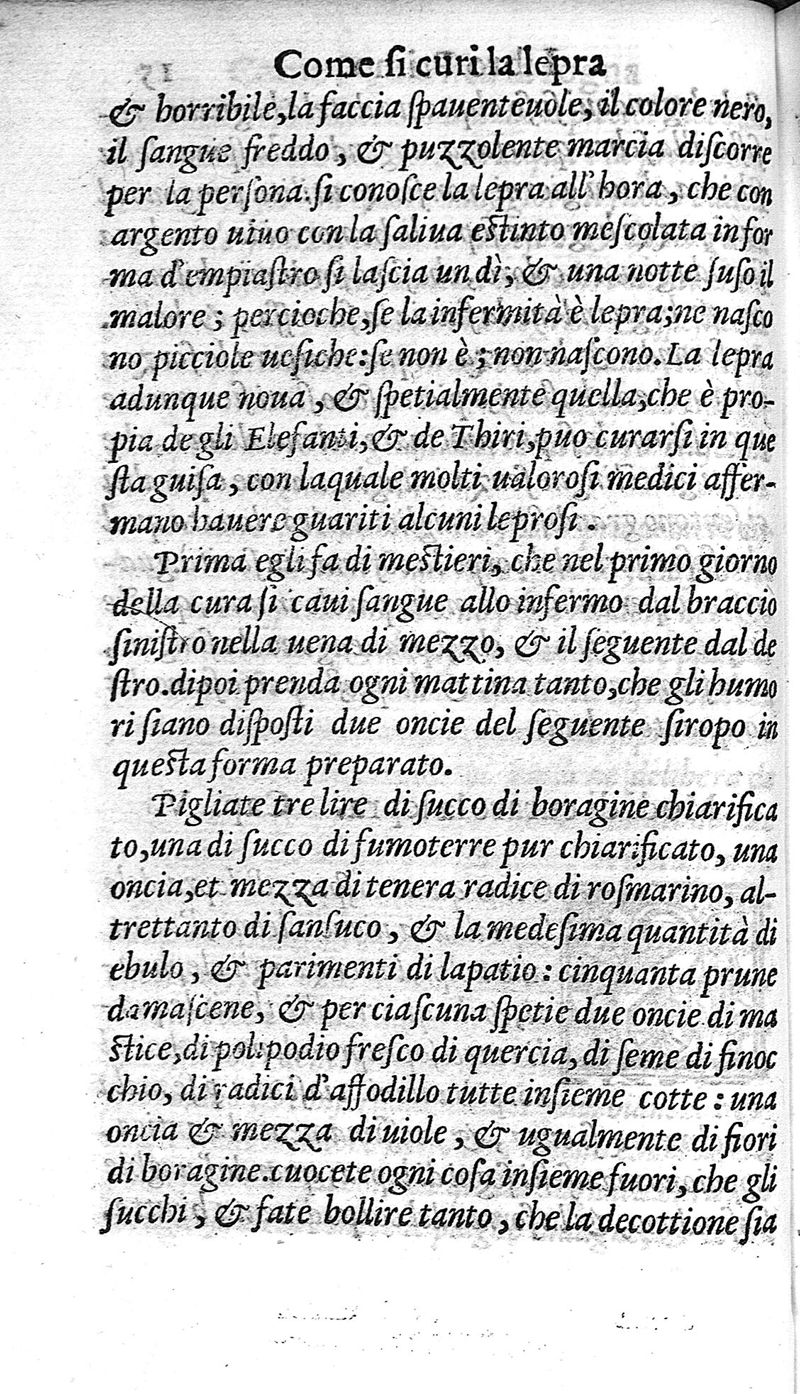 Come ſi curi la lepra
& horribile, la faccia ſpauenteuole, il colore nero,
il ſangue freddo, & puzzolente marcia diſcorre
per la perſona. ſi conoſce la lepra all'hora, che con
argento uiuo con la ſaliua eſtinto meſcolata in for
ma d'empiaſtro ſi laſcia un dì, & una notte ſuſo il
malore; percioche, ſe la infermità è lepra; ne naſco
no picciole ueſiche: ſe non è; non naſcono. La lepra
adunque noua, & ſpetialmente quella, che è pro-
pia de gli Elefanti, & de Thiri, puo curarſi in que
ſta guiſa, con laquale molti ualoroſi medici affer-
mano hauere guariti alcuni leproſi.
Prima egli fa di meſtieri, che nel primo giorno
della cura ſi caui ſangue allo infermo dal braccio
ſiniſtro nella uena di mezzo, & il ſeguente dal de
ſtro. dipoi prenda ogni mattina tanto, che gli humo
ri ſiano diſpoſti due oncie del ſeguente ſiropo in
queſta forma preparato.
Pigliate tre lire di ſucco di boragine chiarifica
to, una di ſucco di fumoterre pur chiarificato, una
oncia, et mezza di tenera radice di roſmarino, al-
trettanto di ſanſuco, & la medeſima quantità di
ebulo, & parimenti di lapatio: cinquanta prune
damaſcene, & per ciaſcuna ſpetie due oncie di ma
ſtice, di polipodio freſco di quercia, di ſeme di finoc
chio, di radici d'affodillo tutte inſieme cotte: una
oncia & mezza di uiole, & ugualmente di fiori
di boragine. cuocete ogni coſa inſieme fuori, che gli
ſucchi, & fate bollire tanto, che la decottione ſia